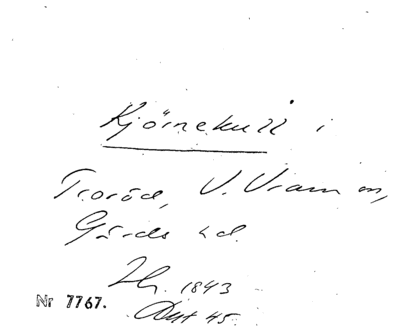 Kjörnekull i
Troröd, V. Vram sn,
Gärds hd.
1843
Nr 7767.
45.